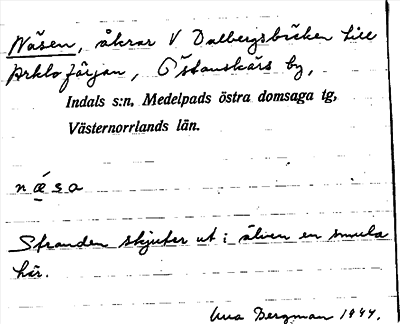 Näsen, åkrar V Dalbergsbäcken till
Arklofärjan, Östanskärs by,
Indals s:n, Medelpads östra domsaga tg,
Västernorrlands län.
næsa
Stranden skjuter ut i älven en smula
här.
Bergman 1944.